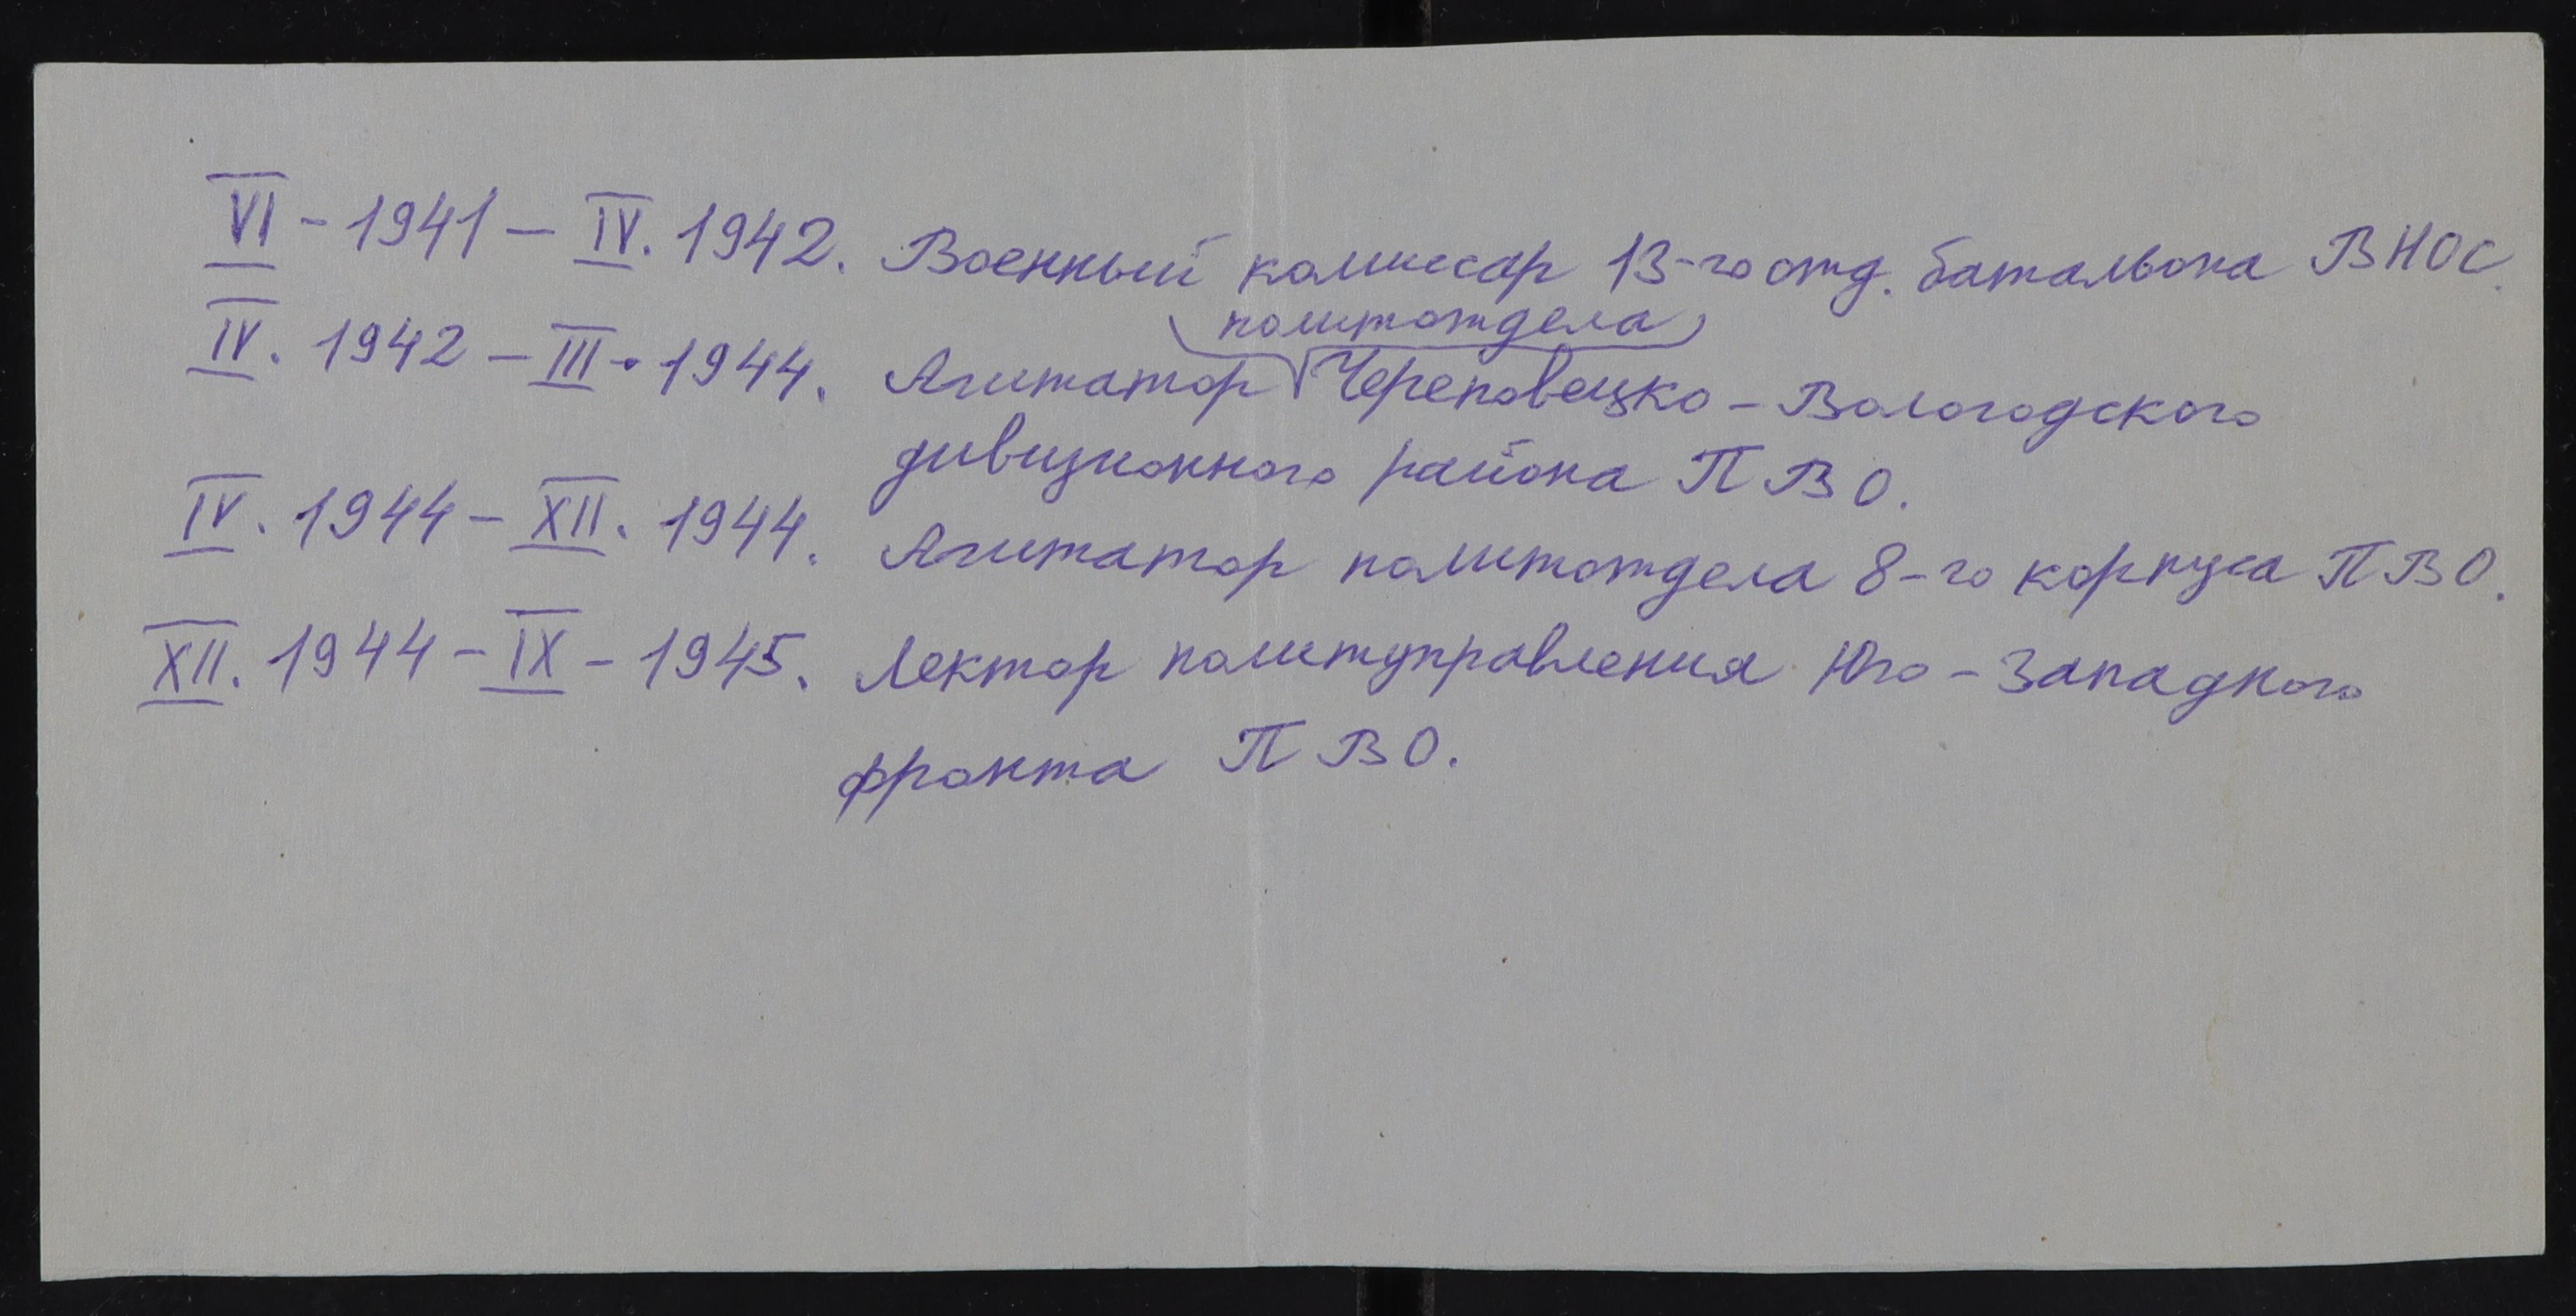 VI - 1941 – IV. 1942. Военный комиссар 13-го отд. батальона ВНОС.
политотдела
IV. 1942 – III. 1944. Агитатор Череповецко-Вологодского
дивизионного района ПВО.
IV. 1944 – XII. 1944. Агитатор политотдела 8-го корпуса ПВО.
XII. 1944 – IX - 1945. Лектор политуправления Юго-Западного
фронта ПВО.